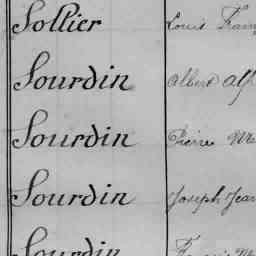 Sollier Louis Fran
Sourdin Albert Alf
Sourdin Pierre Ma
Sourdin Joseph Jean
Sourdin